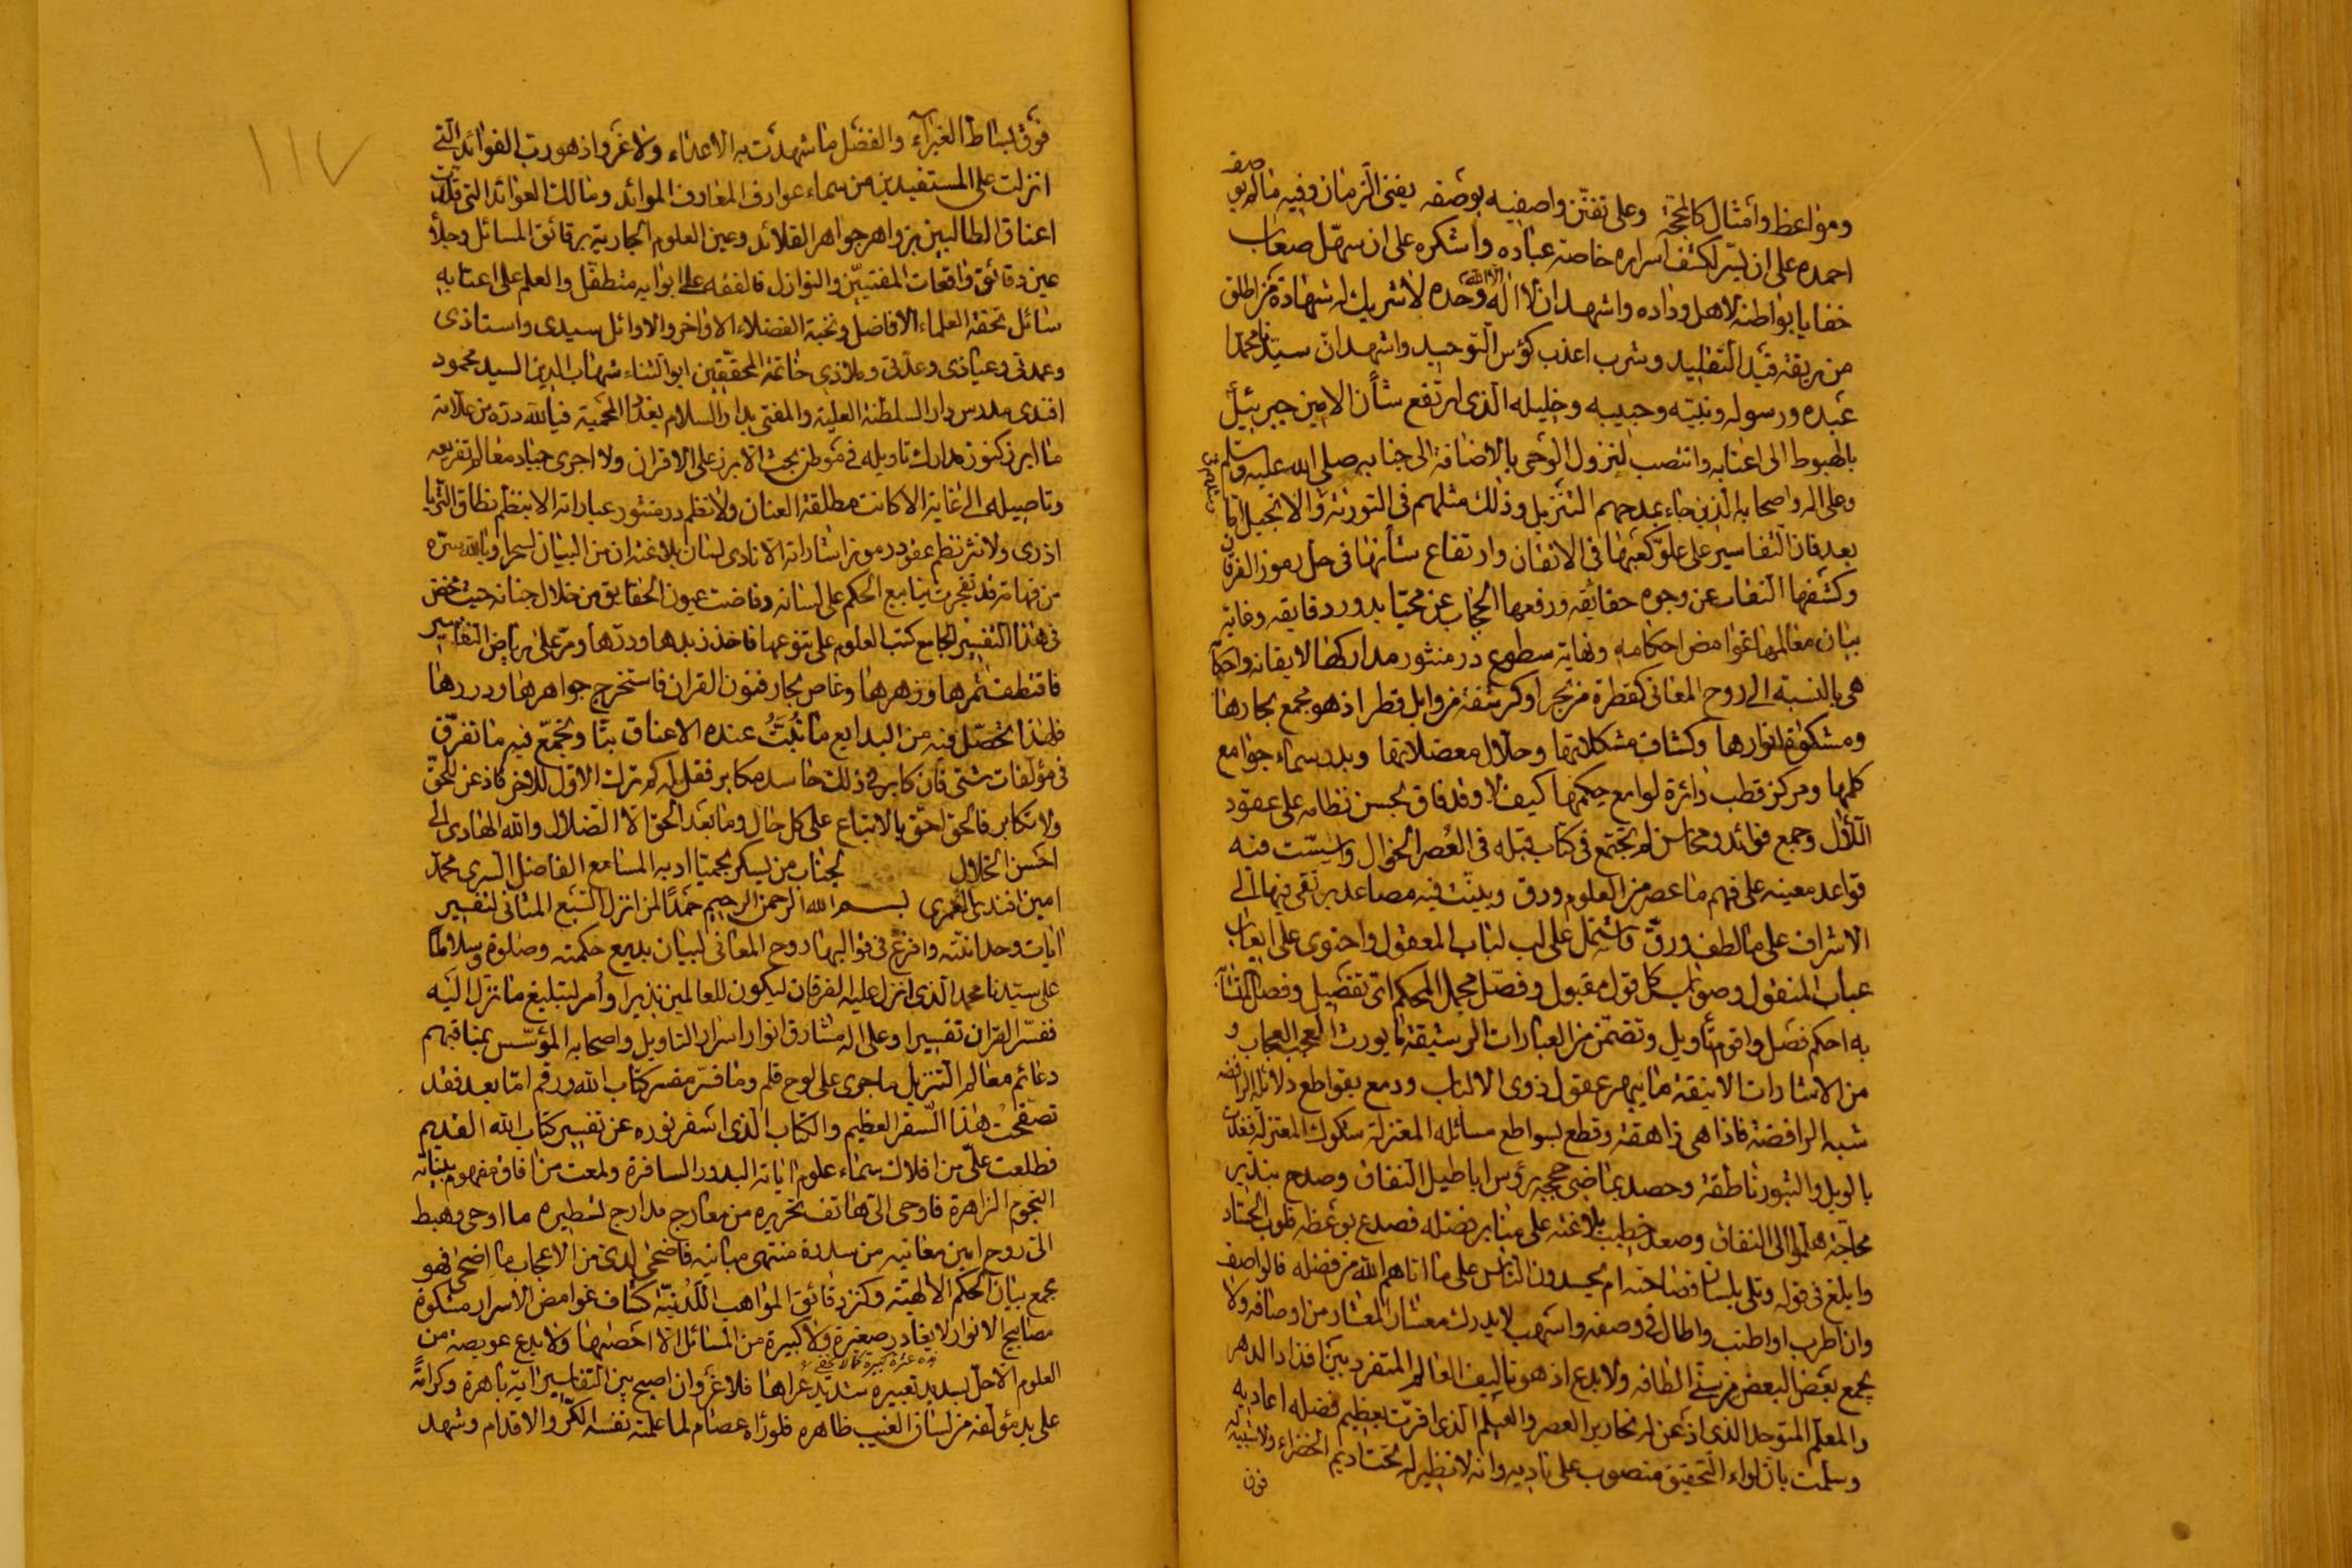 ومواعظ وأمثال كالمحجّة وعلى تفنّن واصفيه بوصفه يفنى الزمان وفيه مالم يوصف
احمده على ان يسّر لكشف اسراره خاصة عباده واشكره على ان سهّل صعاب
خفايا بواطنه لاهل وداده واشهد ان لا اله الا الله وحده لا شريك له شهادة من اطلق
من ربقة قيد التقليد وشرب اعذب كؤس التوحيد واشهد انّ سيّدنا محمّدا
عبده ورسوله ونبيّه وحبيبه وخليله الذى ارتفع شأن الامين جبرئيل
بالهبوط الى اعتابه وانتصب لنزول الوحى بالاضافة الى جنابه صلى الله عليه وسلم
وعلى اله واصحابه الذين جاء بمدحهم التنزيل وذلك مثلهم فى التورية والانجيل امّا
بعد فان التفاسير على علوّ كعبها فى الاتقان وارتفاع شأنها فى حل رموز الفرقان
وكشفها النقاب عن وجوه حقائقه ورفعها الحجاب عن محيّا بدور دقايقه وغاية
بيان معالمها غوامض احكامه ونهاية سطوع در منثور مداركها لايقانه واحكا
هى بالنسبة الى روح المعانى كقطرة من بحر او كرشفة من وابل قطر اذ هو مجمع بحارها
ومشكوة انوارها وكشاف مشكلاتها وحلّال معضلاتها وبدر سماء جوامع
كلمها ومركز قطب دائرة لوامع حكمها كيف لا وقد فاق بحسن نظامه على عقود
اللآل وجمع فوائد ومحاسن لم تجتمع فى كتاب قبله فى العُصر الخوال واسّست فيه
قواعد معينه على فهم ما عصر من العلوم ودق وبينت فيه مصاعد يرتقى فيها الى
الاشراف على ما لطف ورقّ فاشتمل على لب لباب المعقول واحتوى على ابعاب
عباب المنقول وصواب كل قول مقبول وفصّل مجمل المحكم اى تفصيل وفصل المتشا
به احكم فصل واقوم تأويل وتضمّن من العبارات الرشيقة ما يورث العجب العجاب و
من الاشارات الانيقة ما يبهر عقول ذوى الالباب ودمع بقواطع دلائله الرافضه
شبه الرافضة فاذا هى زاهقة وقطع بسواطع مسائله المعتزلة سكوك المعتزلة فغدت
بالويل والثبور ناطقة وحصد بماضى حججه رؤس اباطيل النفاق وصدح بندير
محاجته هلموا الى النفاق وصعد خطيب بلاغته على منابر فضله فصدع بوعظه قلوب الحساد
وابلغ فى قوله وتلى بلسان فصاحته ام يحسدون الناس على ما اتاهم الله من فضله فالواصف
وان اطرب او اطنب واطال فى وصفه واسهب لا يدرك معشار المعشار من اوصافه ولا
يجمع بعض البعض من سنىّ الطافه ولا بدع اذ هو تاليف العالم المتفرد بين افذاذ الدهر
والمعلم المتوحد الذى اذعن له نحارير العصر والعيلم الذى اقرّت بعظيم فضله اعاديه
وسلمت بان لواء التحقيق منصوب على ناديه وانه لا نظير له تحت اديم الخضراء ولا شبيه له
فوق
١١٧
فوق بساط الغبرآء والفضل ما شهدت به الاعداء ولا غرو اذ هو رب الفوائد التى
انزلت على المستفيدين من سماء عوارف المعارف الموائد ومالك العوائد التى قلدت
اعناق الطالبين بزواهر جواهر القلائد وعين العلوم الجارية برقائق المسائل وجلأ
عين دقائق واقعات المفتيّين والنوازل فالفقه على ابوابه متطفّل والعلم على اعتابه
سائل تحفة العلماء الافاضل ونخبة الفضلاء الاواخر والاوائل سيدى واستاذى
وعمدتى وعياذى وعدّتى وملاذى خاتمة المحققين ابو الثناء شهاب الدين السيد محمود
افندى مدرس دار السلطنة العلية والمفتى بدار السلام بغداد المحميّة فيا لله درّه من علّامة
ما ابرز كنوز مدارك تاويله فى موطن بحث الا برز على الاقران ولا اجرى جياد معالم تفريعه
وتاصيله الى غاية الا كانت مطلقة العنان ولا نظم در منثور عباراته الا بنظم نطاق الثريا
ازرى ولا نثر نظم عقود رموز اشاراته الا نادى لسان بلاغته ان من البيان لسحرا وبالله سرّه
من فهامة قد تفجرت ينابيع الحكم على لسانه وفاضت عيون الحقايق من خلال جنانه حيث مخض
فى هذا التفسير الجامع كتب العلوم على تنوعها فاخذ زبدها ودرّها ومرّ على رياض التفاسير
فاقتطف ثمرها وزهرها وغاص بحار فنون القران فاستخرج جواهرها ودررها
فلهذا تحصّل فيه من البدايع ما تُبَتُّ عنده الاعناق بتّا وتجمّع فيه ما تفرّق
فى مؤلفات شتى فان كابر فى ذلك حاسد مكابر فقل له كم ترك الاوّل للاخر فاذعن للحقّ
ولا تكابر فالحق احقّ بالاتباع على كل حال وما بعد الحق الا الضلال والله الهادى الى
احسن الخلال لجناب من يسكر بحميّا ادبه المسامع الفاضل السرى محمد
امين افندى العمرى بسم الله الرحمن الرحيم حمدًا لمن انزل السّبع المثانى لتفسير
ايات وحدانيّته وافرغ فى قوالبها روح المعانى لبيان بديع حكمته وصلوة وسلامًا
على سيّدنا محمد الذى انزل عليه الفرقان ليكون للعالمين نذيرا واُمر لتبليغ ما نزل اليه
ففسّر القران تفسيرا وعلى اله مشارق انوار اسرار التاويل واصحابه المؤسّس بمناقبهم
دعائم معالم التنزيل ما جرى على لوح قلم وما فسّر مفسر كتاب الله ورقم امّا بعد فقد
تصفّحتُ هذا السّفر العظيم والكتاب الذى اسفر نوره عن تفسير كتاب الله القديم
فطلعت علىّ من افلاك سماء علوم اياته البدور السافرة ولمعت من افاق مفهوم بيناته
النجوم الزاهرة فاوحى الىّ هاتف تحريره من معارج مدارج تسطيره ما اوحى وهبط
الىّ روح امين معانيه من سدرة منتهى مبانيه فاضحى لدى من الاعجاب ما اضحى فهو
مجمع بيان الحكم الالهيّة وكنز دقائق المواهب اللّدُنيّة كشاف غوامض الاسرار مشكوة
مصابيح الانوار لا يغادر صغيرة ولا كبيرة من المسائل الا احصتها ولا يدع عويصة من
العلوم الا حلّ بسديد تعبيره شديد عراها فلا غرو ان اصبح بين التفاسير اية باهرة وكرامةً
على يد مؤلفه من لسان الغيب ظاهره فلو رآه عصام لما علمته نفسه الكرّ والاقدام وشهد